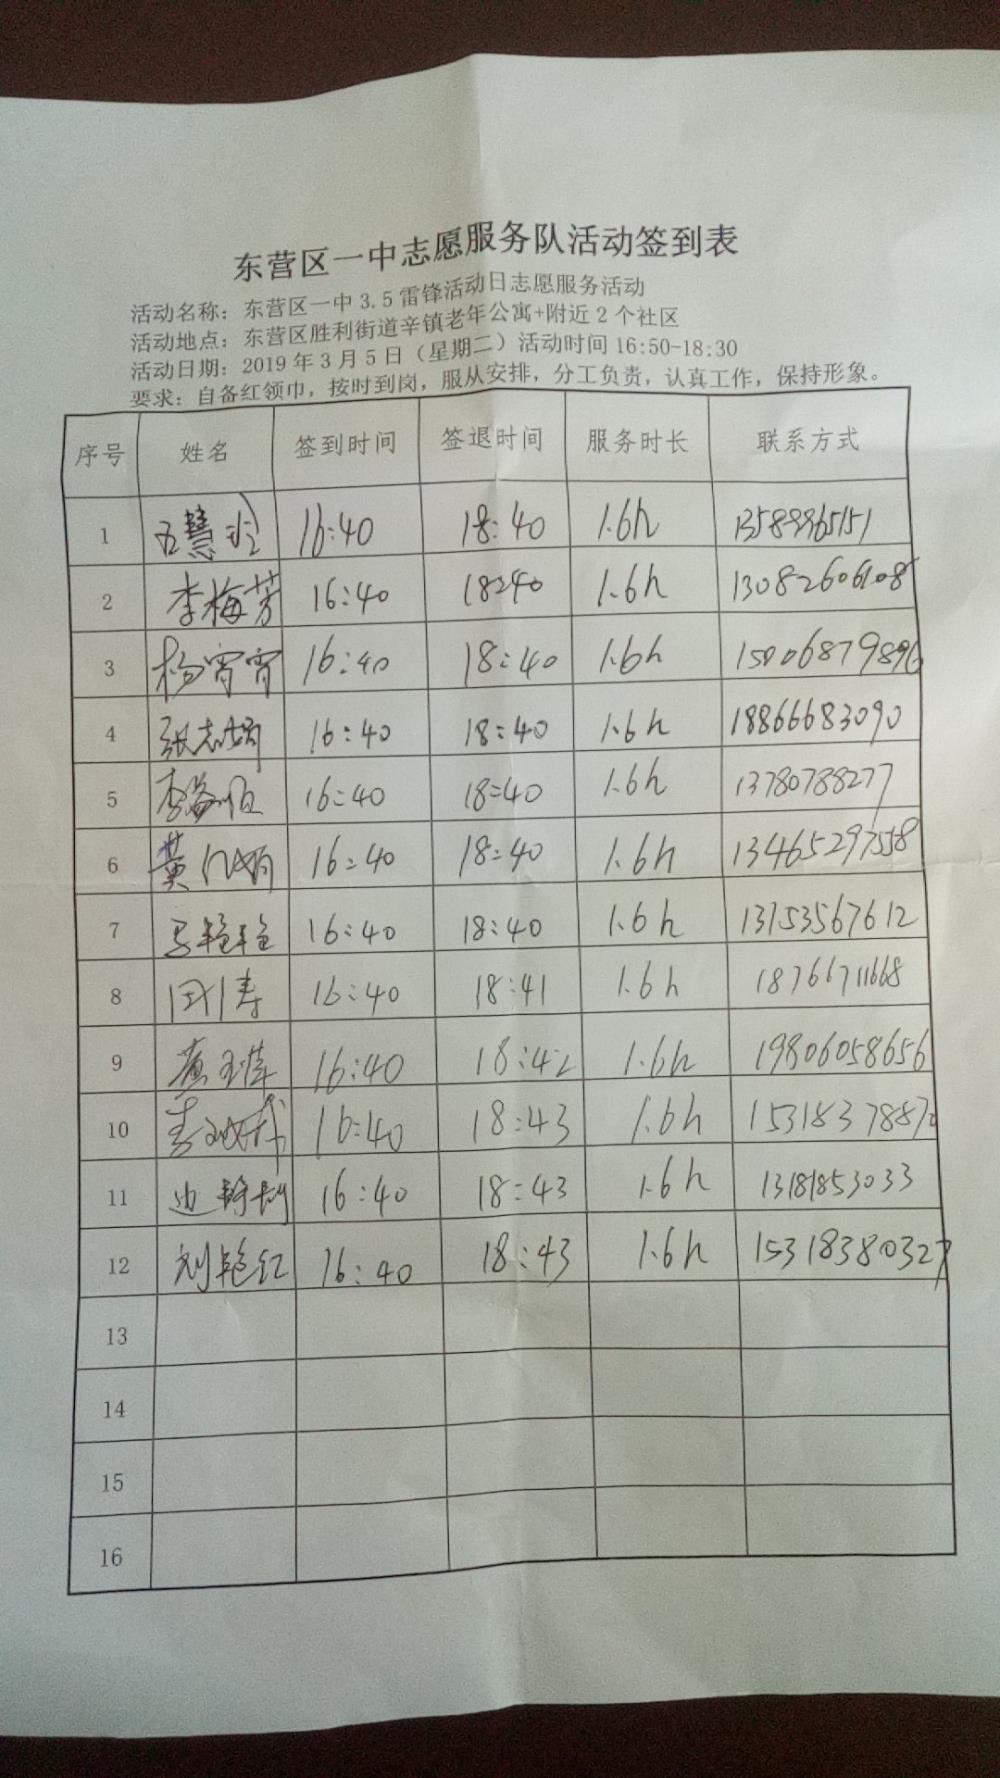 东营区一中志愿服务队活动签到表
活动名称：东营区一中 3.5 雷锋活动日志愿服务活动
活动地点：东营区胜利街道辛镇老年公寓+附近 2 个社区
活动日期：2019 年 3 月 5 日（星期二）活动时间 16:50-18:30
要求：自备红领巾，按时到岗，服从安排，分工负责，认真工作，保持形象。
序号 姓名 签到时间 签退时间 服务时长 联系方式
1 慧玲 16:40 18:40 1.6h 13589965151
2 李梅芳 16:40 18:40 1.6h 13082606108
3 杨宵宵 16:40 18:40 1.6h 15006879896
4 张志娟 16:40 18:40 1.6h 18866683090
5 李 16:40 18:40 1.6h 13780788277
6 黄 16:40 18:40 1.6h 13465297558
7 马艳艳 16:40 18:40 1.6h 13153567612
8 田涛 16:40 18:41 1.6h 18766711668
9 黄玉萍 16:40 18:42 1.6h 19806058656
10 16:40 18:43 1.6h 15318378872
11 边 16:40 18:43 1.6h 13181853033
12 刘艳红 16:40 18:43 1.6h 15318380327
13
14
15
16